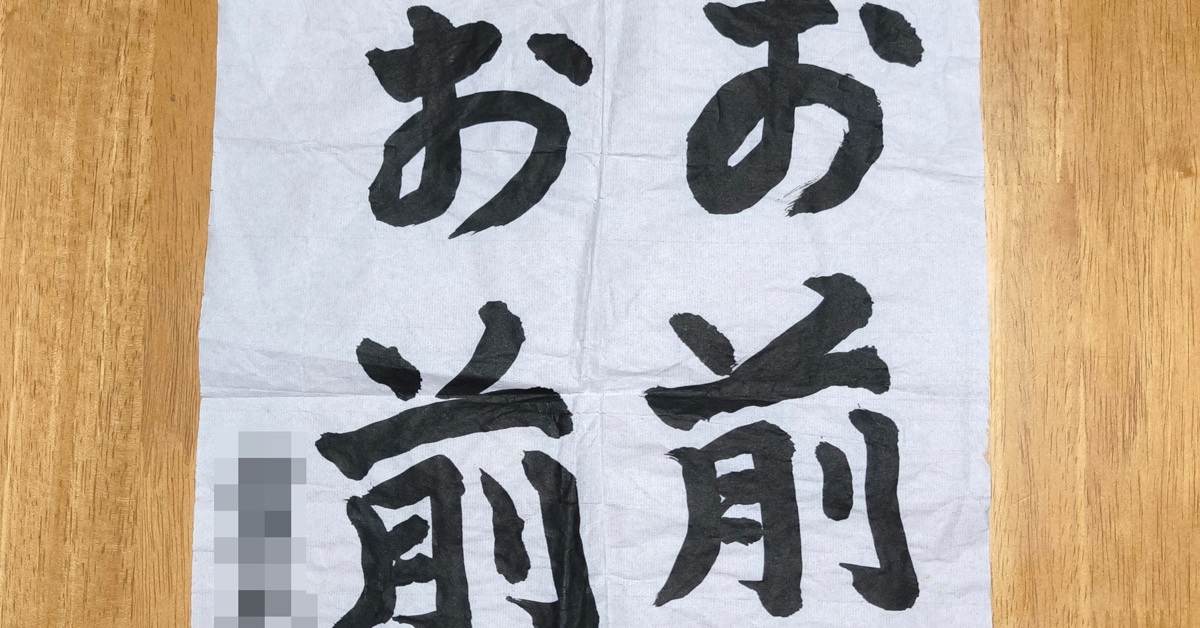 お前
お前